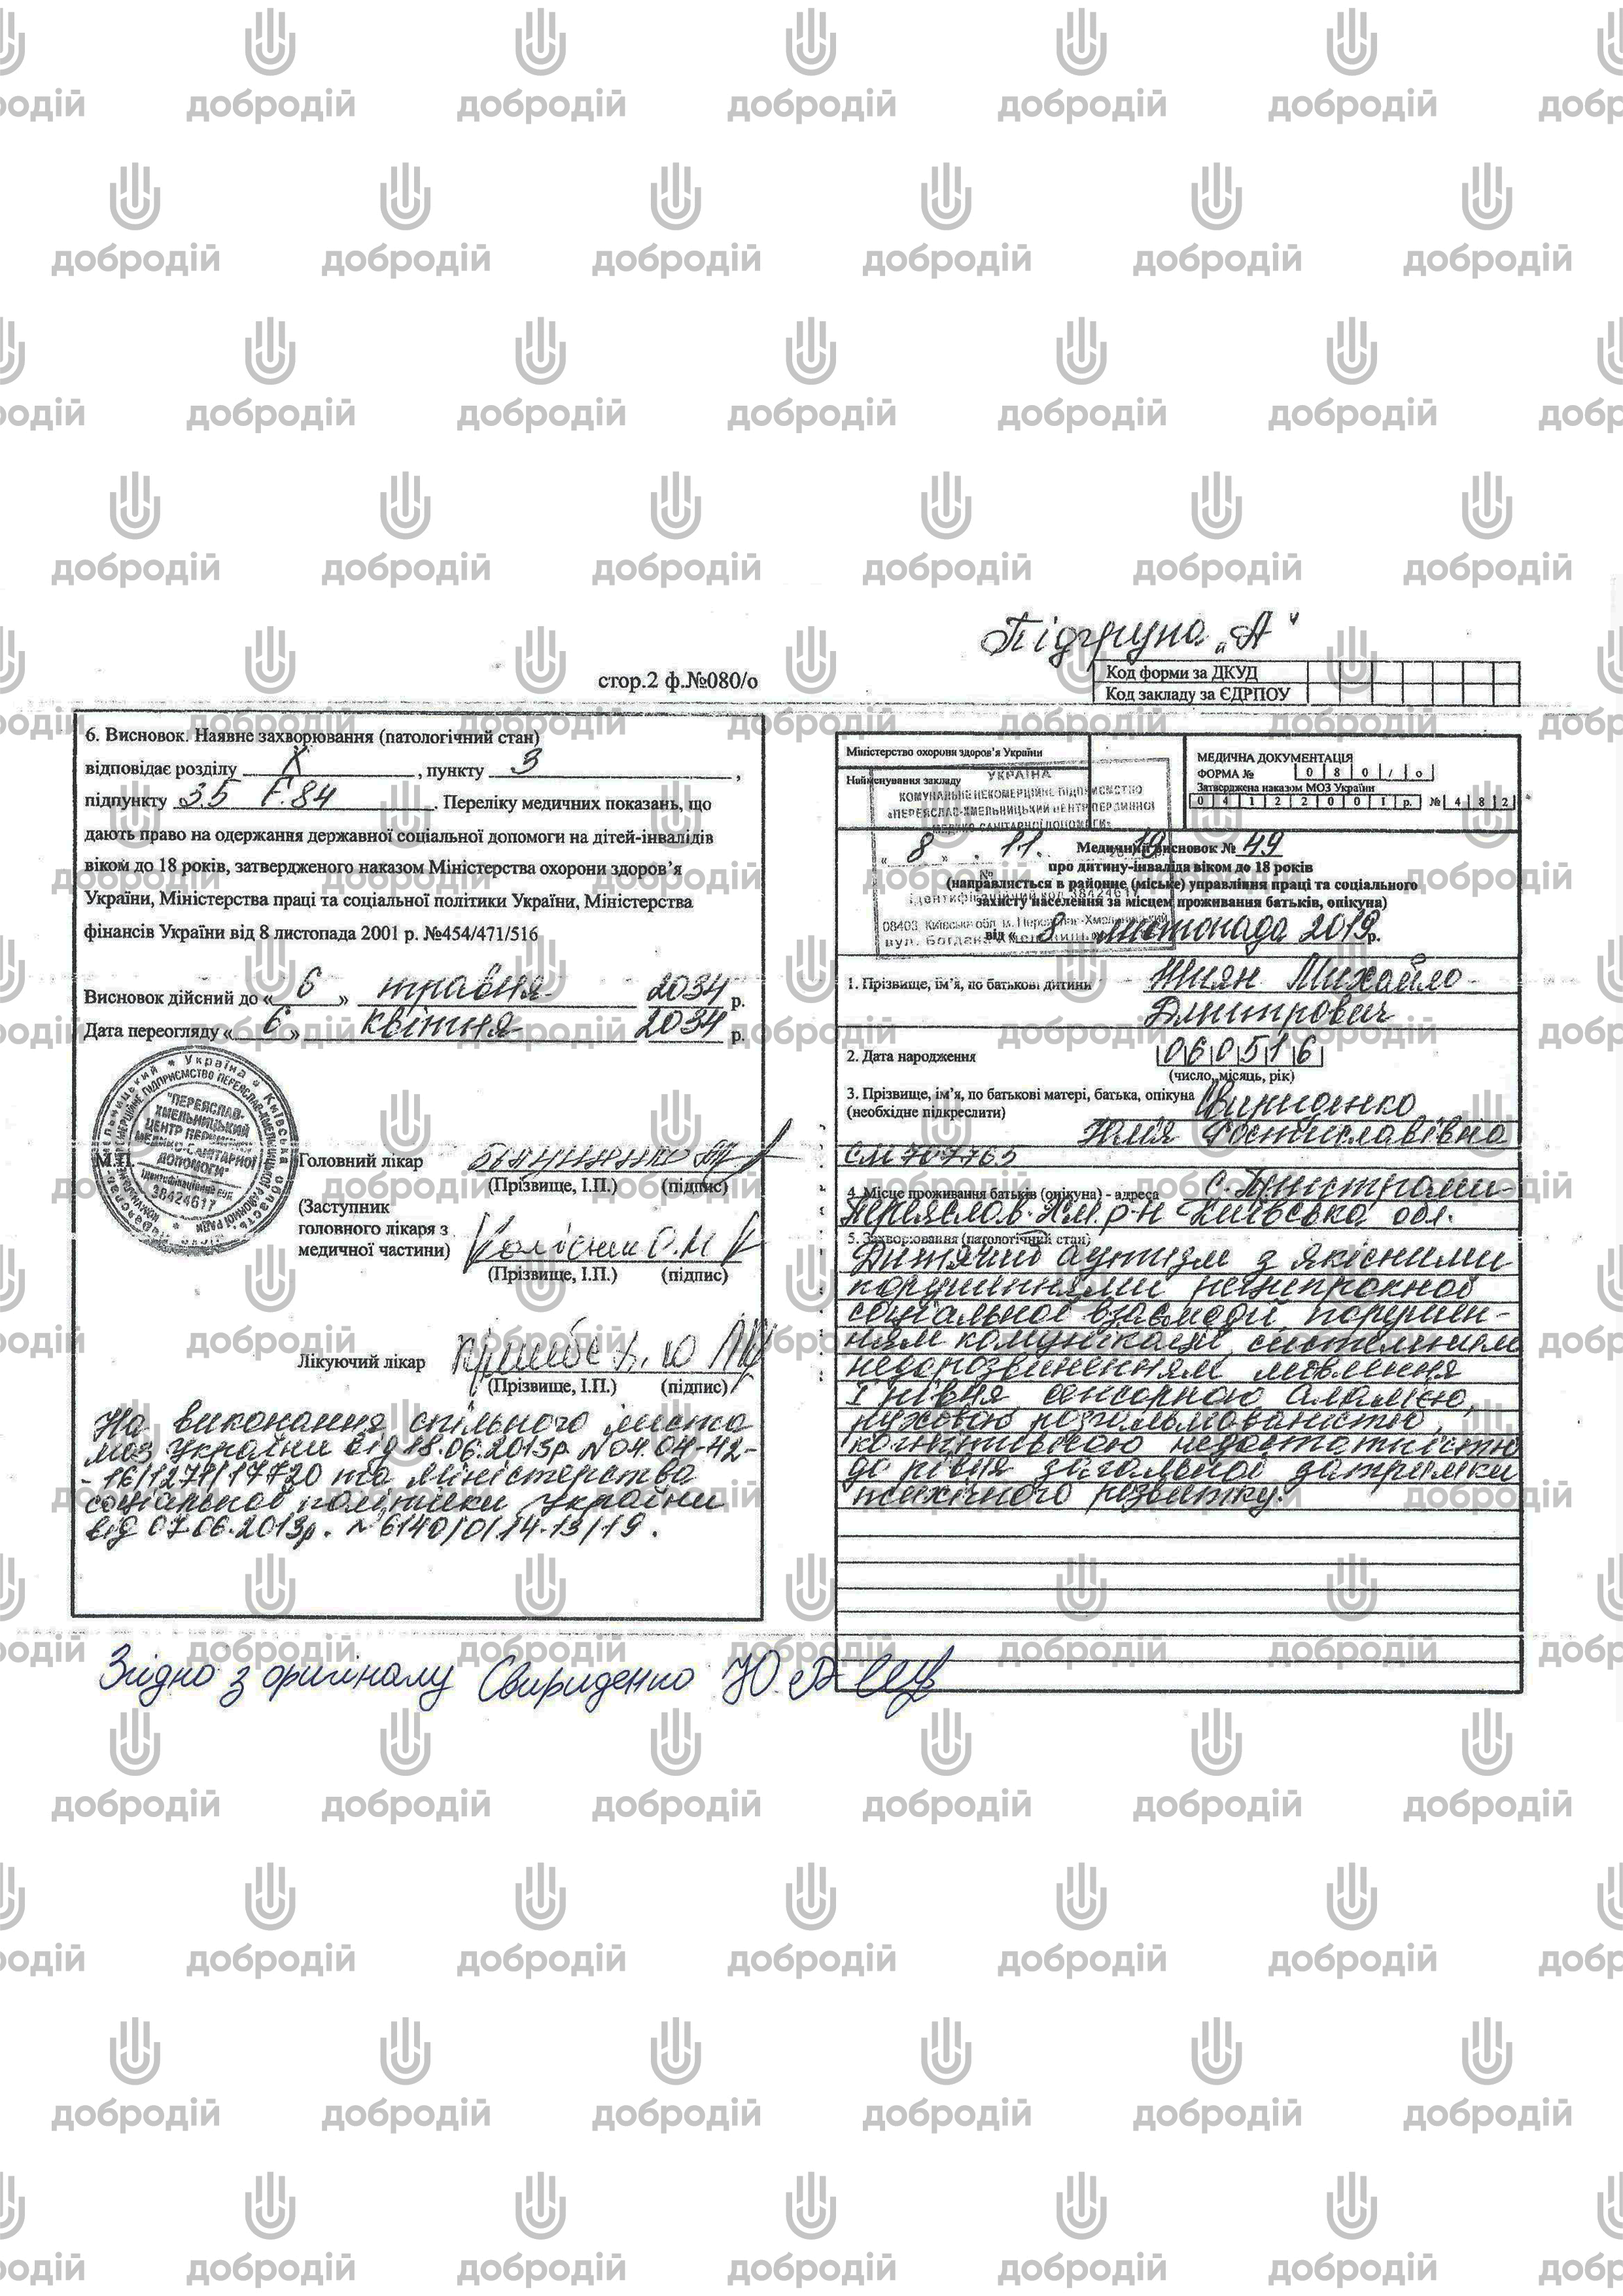 добродій
Підгрупа „А"
стор.2 ф.№080/о
Код форми за ДКУД
Код закладу за ЄДРПОУ
6. Висновок. Наявне захворювання (патологічний стан)
відповідає розділу X , пункту 3 ,
підпункту 35 F.84 . Переліку медичних показань, що
дають право на одержання державної соціальної допомоги на дітей-інвалідів
віком до 18 років, затвердженого наказом Міністерства охорони здоров'я
України, Міністерства праці та соціальної політики України, Міністерства
фінансів України від 8 листопада 2001 р. №454/471/516
Висновок дійсний до « 6 » травня 2034 р.
Дата переогляду « 6 » квітня 2034 р.
"ПЕРЕЯСЛАВ-
ХМЕЛЬНИЦЬКИЙ
ЦЕНТР ПЕРВИННОЇ
МЕДИКО-САНІТАРНОЇ
ДОПОМОГИ"
38424617
М.П.
Головний лікар
(Прізвище, І.П.) (підпис)
(Заступник
головного лікаря з
медичної частини)
(Прізвище, І.П.) (підпис)
Лікуючий лікар
(Прізвище, І.П.) (підпис)
На виконання спільного листа
МОЗ України від 18.06.2013р №04.04-42-
-16/1271/17720 та міністерства
соціальної політики України
від 07.06.2013р. №6140/0/14-13/19.
Міністерство охорони здоров'я України
Найменування закладу
УКРАЇНА
КОМУНАЛЬНЕ НЕКОМЕРЦІЙНЕ ПІДПРИЄМСТВО
«ПЕРЕЯСЛАВ-ХМЕЛЬНИЦЬКИЙ ЦЕНТР ПЕРВИННОЇ
МЕДИКО-САНІТАРНОЇ ДОПОМОГИ»
МЕДИЧНА ДОКУМЕНТАЦІЯ
ФОРМА № 0 8 0 / о
Затверджена наказом МОЗ України
0 4 1 2 2 0 0 1 р. № 4 8 2
« 8 » 11. 19 Медичний висновок № 49
про дитину-інваліда віком до 18 років
(направляється в районне (міське) управління праці та соціального
захисту населення за місцем проживання батьків, опікуна)
ідентифікаційний код 38424617
08403, Київська обл. м. Переяслав-Хмельницький
від « 8 » листопада 2019 р.
1. Прізвище, ім'я, по батькові дитини Шиян Михайло
Дмитрович
2. Дата народження 0 6 0 5 1 6
(число, місяць, рік)
3. Прізвище, ім'я, по батькові матері, батька, опікуна
(необхідне підкреслити)
Юлія Ростиславівна
СМ 707765
4. Місце проживання батьків (опікуна) - адреса с. Пристроми
Переяслав-Хм. р-н Київська обл.
5. Захворювання (патологічний стан)
Дитячий аутизм з якісними
порушеннями реципрокної
соціальної взаємодії, порушен-
ням комунікації, системним
недорозвиненням мовлення
I рівня, сенсорною алалією,
руховою розгальмованістю,
когнітивною недостатністю
до рівня загальної затримки
психічного розвитку.
Згідно з оригіналу Свириденко Ю.